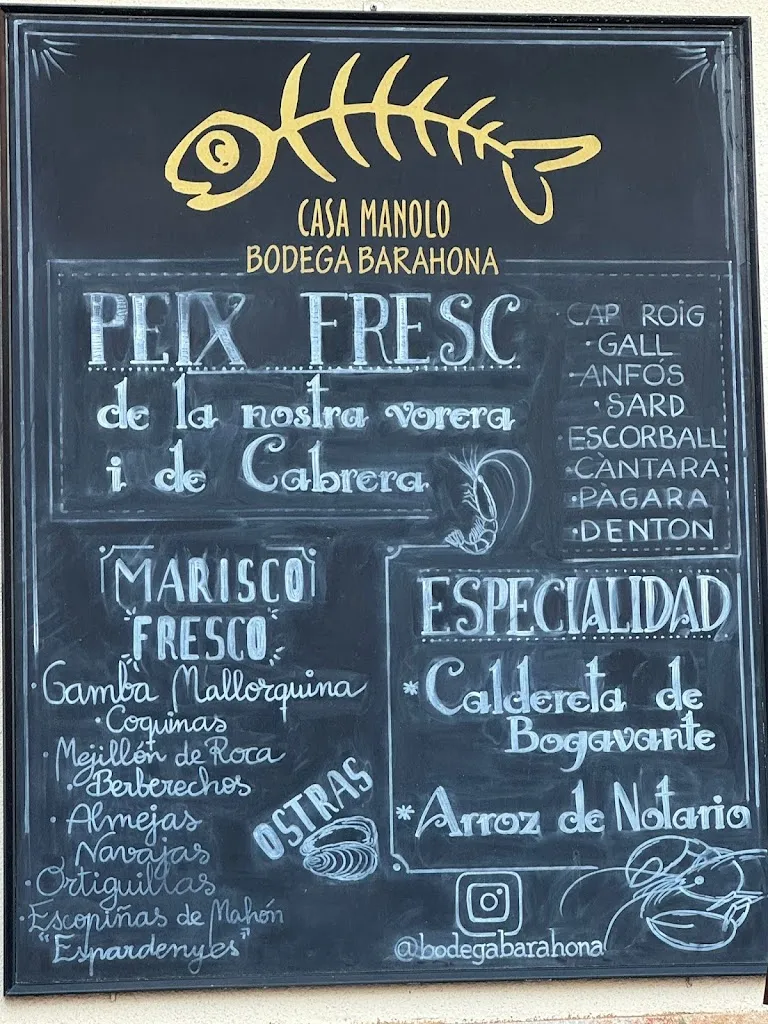 CASA MANOLO
BODEGA BARAHONA
PEIX FRESC
de la nostra vorera
i de Cabrera
· CAP ROIG
· GALL
· ANFÓS
· SARD
· ESCORBALL
· CÀNTARA
· PÀGARA
· DENTON
MARISCO
FRESCO
· Gamba Mallorquina
· Coquinas
· Mejillón de Roca
· Berberechos
· Almejas
· Navajas
· Ortiguillas
· Escopiñas de Mahón
"Espardenyes"
OSTRAS
ESPECIALIDAD
* Caldereta de
Bogavante
* Arroz de Notario
@bodegabarahona